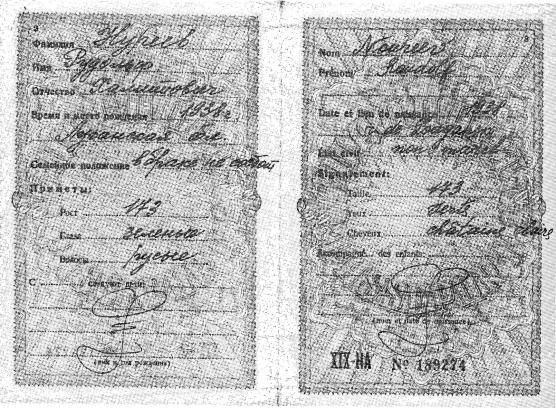 Фамилия Нуреев
Имя Рудольф
Отчество Хамитович
Время и место рождения 1938 г
Семейное положение в браке не состоит
Приметы:
Рост 173
Глаза зеленые
Волосы русые
С следуют дети:
(имя и год рождения)
Nom Noureev
Prénom Rudolf
Date et lieu de naissance 1938
Etat civil non marié
Signalement:
Taille 173
Yeux verts
Cheveux châtains claire
Accompagné des enfants:
(nom et date de naissance)
XIX-НА № 189274